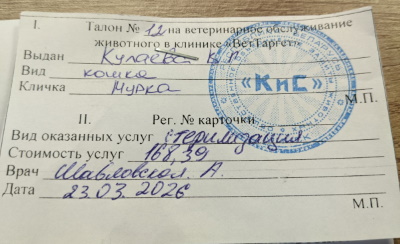 I. Талон № 12 на ветеринарное обслуживание
животного в клинике «ВетТаргет»
Выдан
Вид кошка
Кличка Мурка
«КиС»
М.П.
II. Рег. № карточки
Вид оказанных услуг стерилизация
Стоимость услуг 168,39
Врач А.
Дата 23.03.2026
М.П.